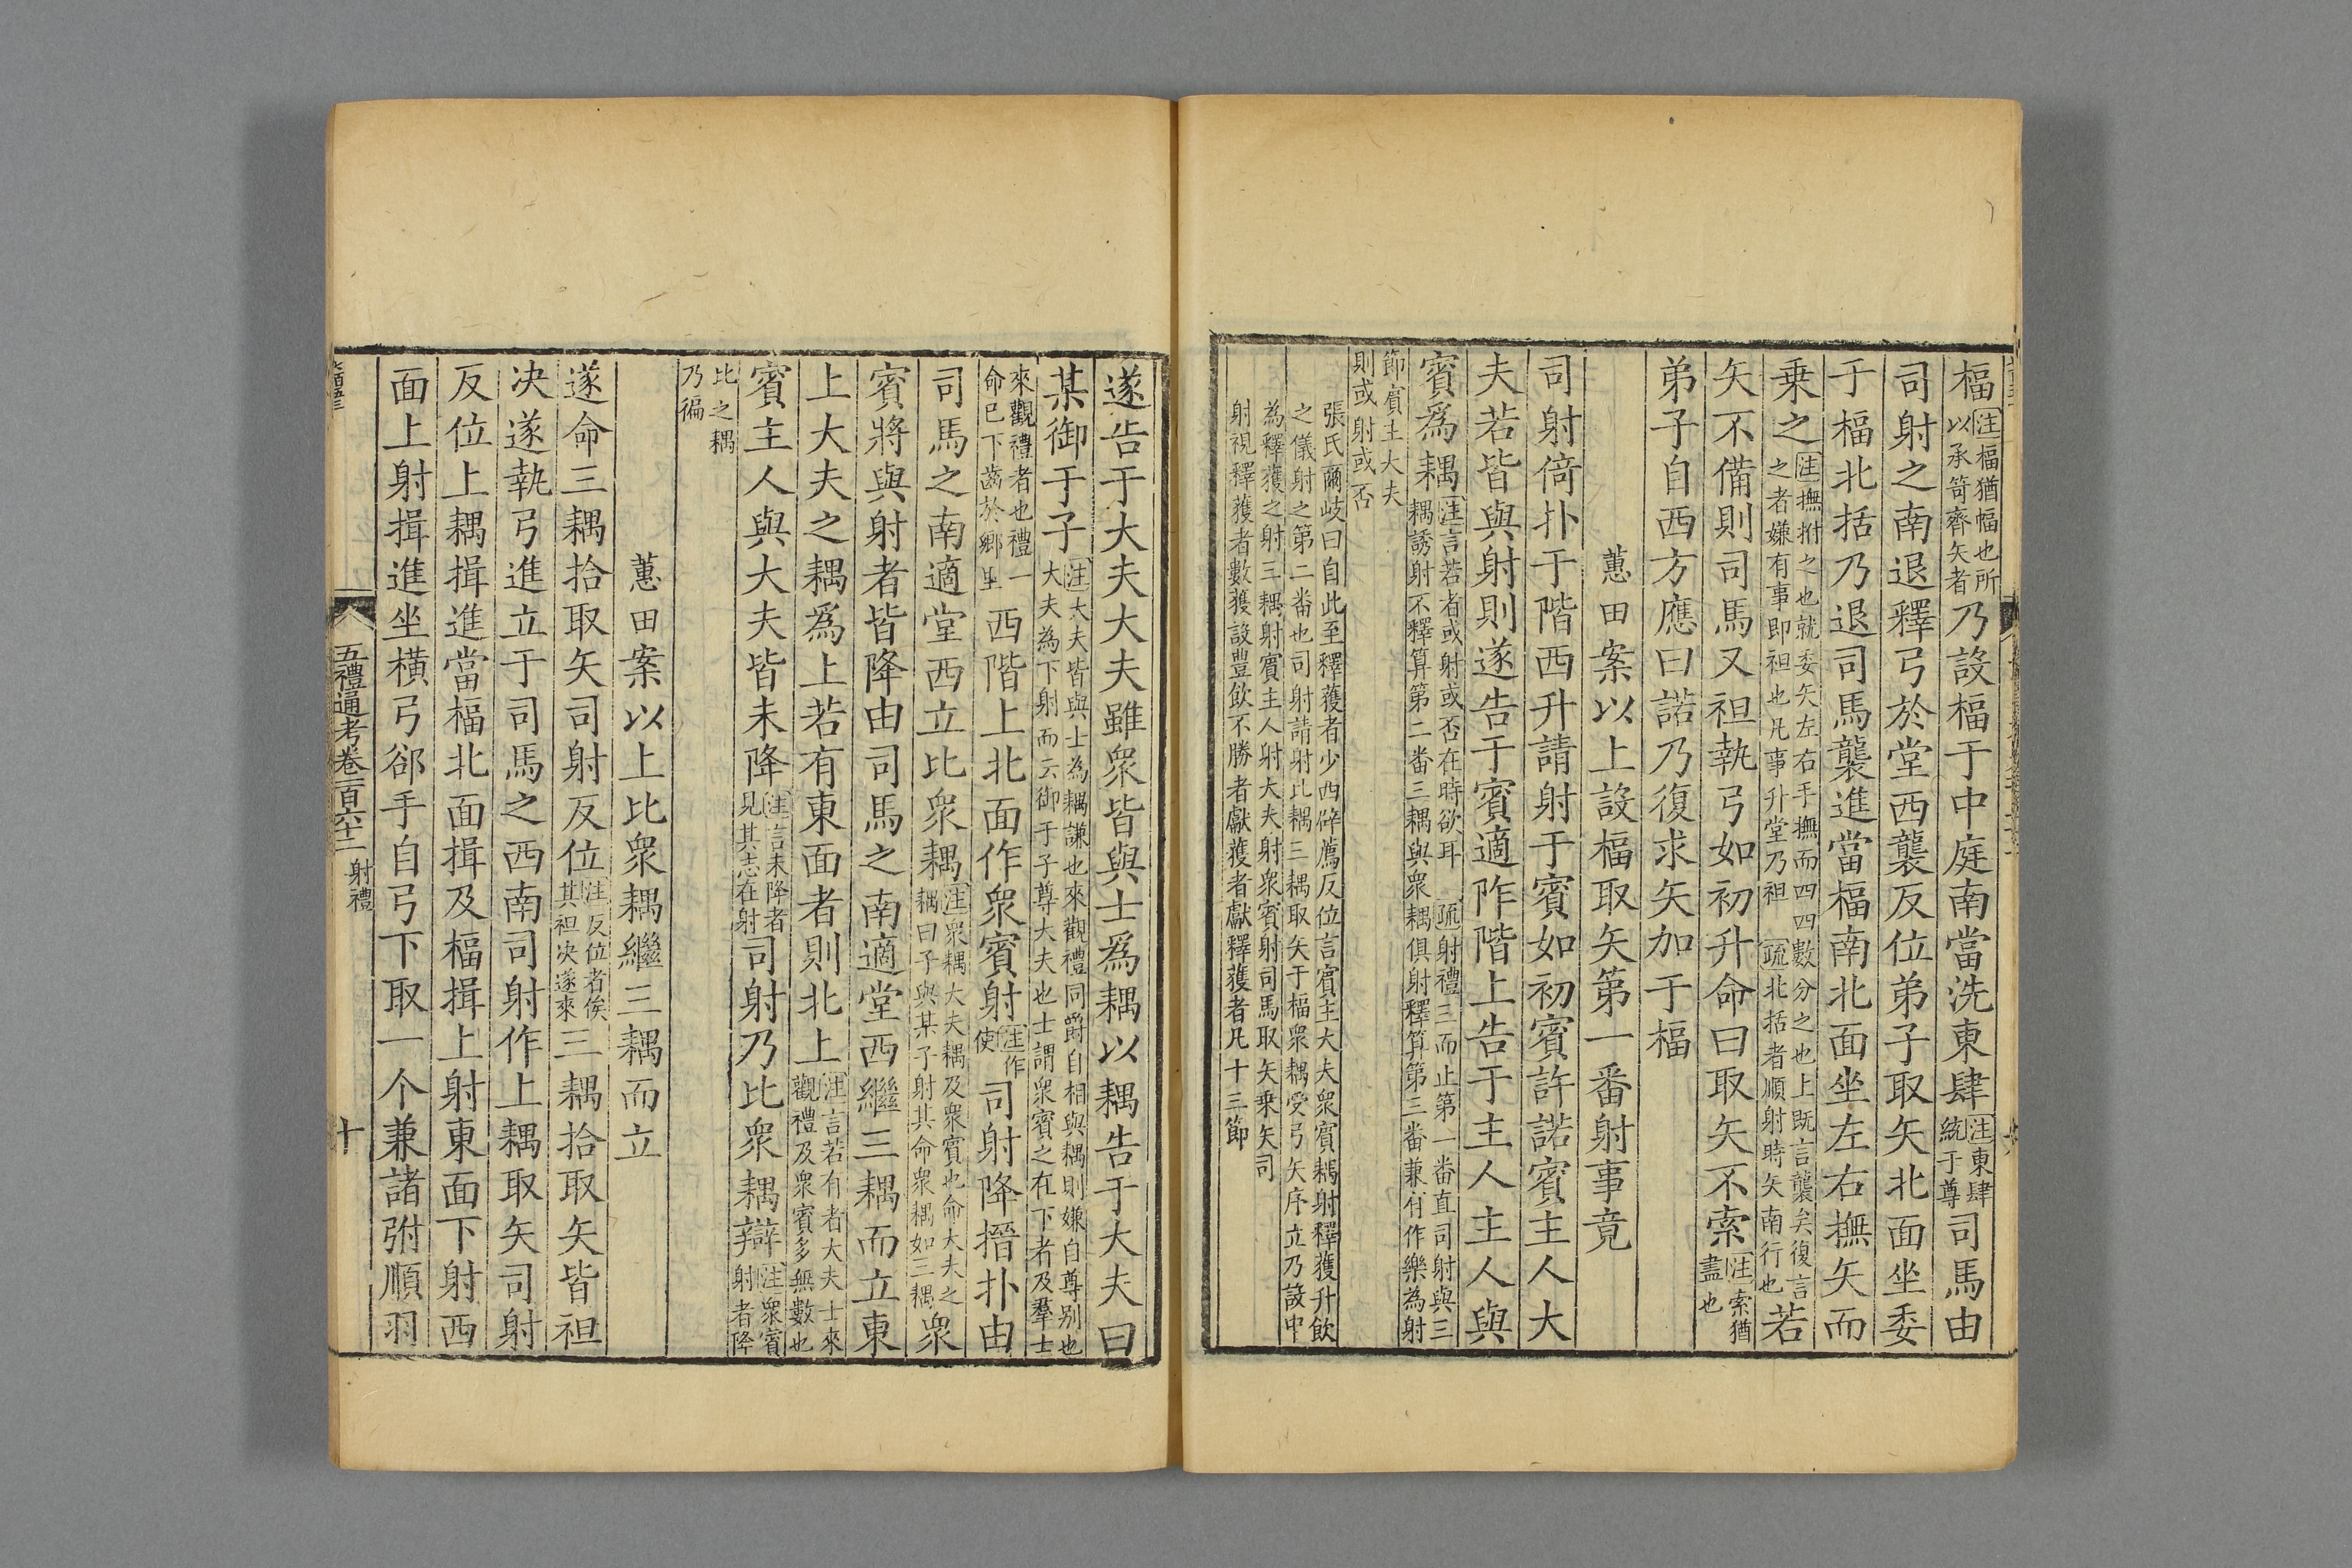 楅注楅猶幅也所以承笴齊矢者乃設楅于中庭南當洗東肆注東肆統于尊司馬由
司射之南退釋弓於堂西襲反位弟子取矢北面坐委
于楅北括乃退司馬襲進當楅南北面坐左右撫矢而
乗之注撫拊之也就委矢左右手撫而四四數分之也上既言襲矣復言之者嫌有事即袒也凡事升堂乃袒 疏北括者順射時矢南行也若
矢不備則司馬又袒執弓如初升命曰取矢不索注索猶盡也
弟子自西方應曰諾乃復求矢加于楅
蕙田案以上設楅取矢第一番射事竟
司射倚扑于階西升請射于賓如初賓許諾賓主人大
夫若皆與射則遂告于賓適阼階上告于主人主人與
賓爲耦注言若者或射或否在時欲耳 疏射禮三而止第一番直司射與三耦誘射不釋算第二番三耦與衆耦俱射釋算第三番兼有作樂為射
節賓主大夫則或射或否
張氏爾岐曰自此至釋獲者少西辟薦反位言賓主大夫衆賓耦射釋獲升飲
之儀射之第二番也司射請射比耦三耦取矢于楅衆耦受弓矢序立乃設中
為釋獲之射三耦射賓主人射大夫射衆賓射司馬取矢乗矢司
射視釋獲者數獲設豐飲不勝者獻獲者獻釋獲者凡十三節
遂告于大夫大夫雖衆皆與士爲耦以耦告于大夫曰
某御于子注大夫皆與士為耦謙也來觀禮同爵自相與耦則嫌自尊別也大夫為下射而云御于子尊大夫也士謂衆賓之在下者及羣士
來觀禮者也禮一命已下齒於鄉里西階上北面作衆賓射注作使司射降搢扑由
司馬之南適堂西立比衆耦注衆耦大夫耦及衆賓也命大夫之耦曰子與某子射其命衆耦如三耦衆
賓將與射者皆降由司馬之南適堂西繼三耦而立東
上大夫之耦爲上若有東面者則北上注言若有者大夫士來觀禮及衆賓多無數也
賓主人與大夫皆未降注言未降者見其志在射司射乃比衆耦辯注衆賓射者降
比之耦乃徧
蕙田案以上比衆耦繼三耦而立
遂命三耦拾取矢司射反位注反位者俟其袒決遂來三耦拾取矢皆袒
决遂執弓進立于司馬之西南司射作上耦取矢司射
反位上耦揖進當楅北面揖及楅揖上射東面下射西
面上射揖進坐橫弓郤手自弓下取一个兼諸弣順羽
五禮通考卷一百六十二 射禮
十